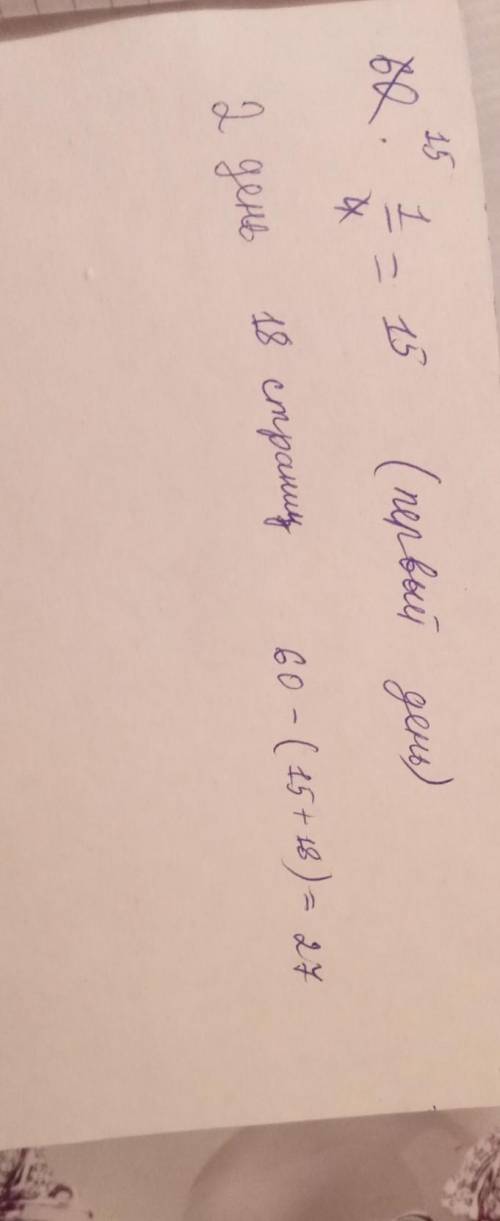 15
60 · 1/4 = 15 (первый день)
2 день 18 страниц 60 - (15 + 18) = 27